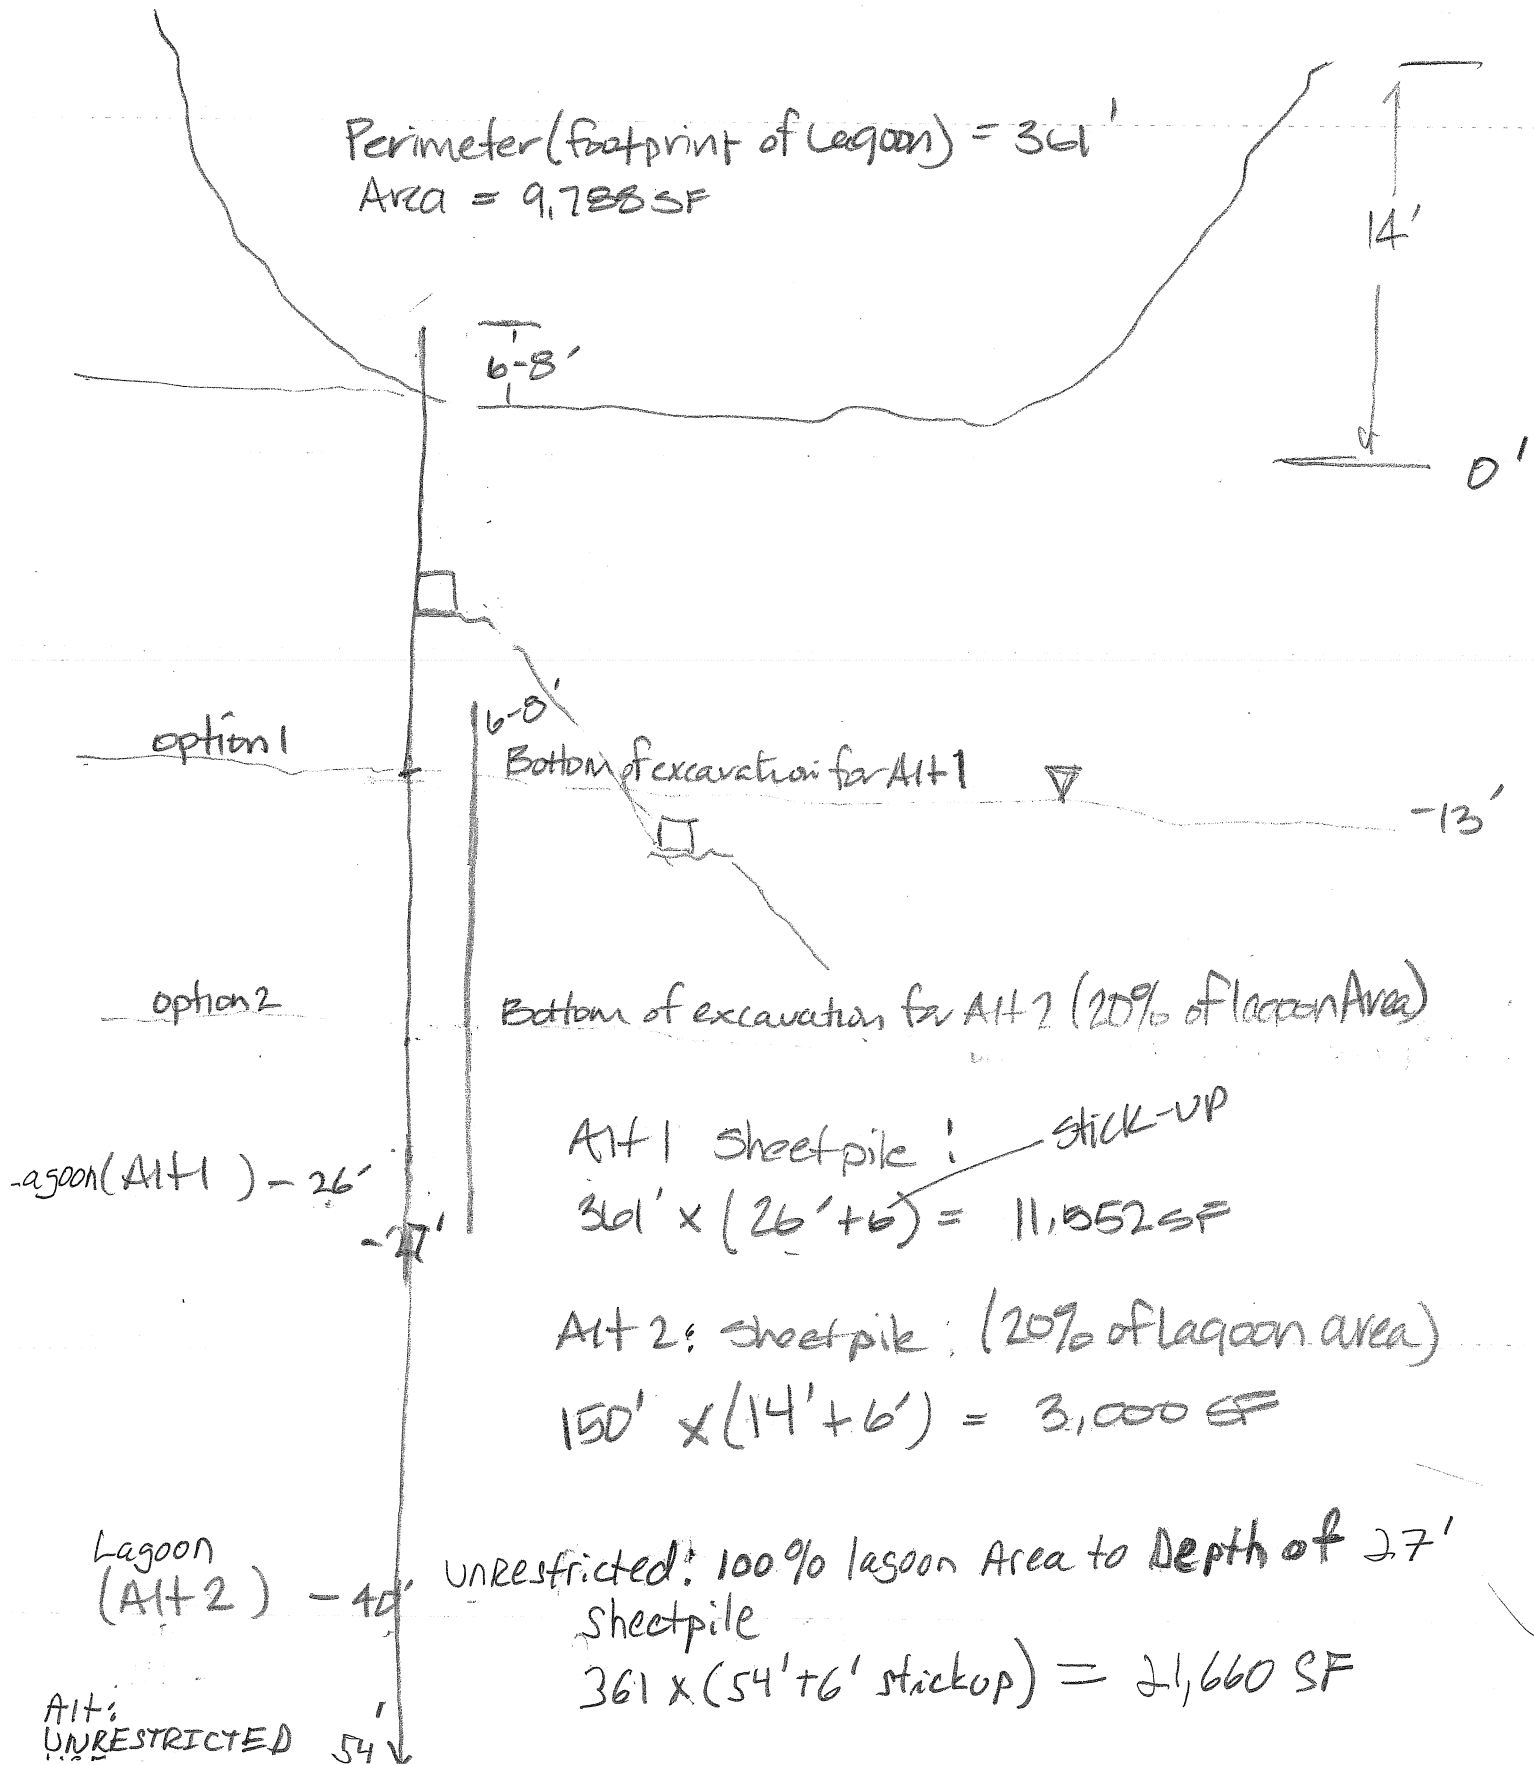 Perimeter (footprint of Lagoon) = 361'
Area = 9,788 SF
14'
6-8'
0'
6-8'
option 1
Bottom of excavation for Alt 1
-13'
option 2
Bottom of excavation for Alt 2 (20% of lagoon Area)
Alt 1 Sheetpile :
stick-up
Lagoon (Alt 1 ) - 26'
361' x (26'+6) = 11,552 SF
-27'
Alt 2: Sheetpile : (20% of Lagoon area)
150' x (14'+6') = 3,000 SF
Lagoon
(Alt 2 ) - 40'
UNRestricted: 100% lagoon Area to Depth of 27'
Sheetpile
361 x (54'+6' stickup) = 21,660 SF
Alt:
UNRESTRICTED 54'